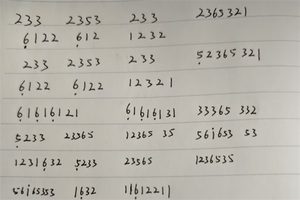 233 2353 233 2365321
6122 612 1232
233 2353 233 52365321
6122 6122 12321
61616121 61616131 33365 332
5233 23565 12365 35 561653 53
1231632 5233 23565 1236535
56165353 1632 11612211